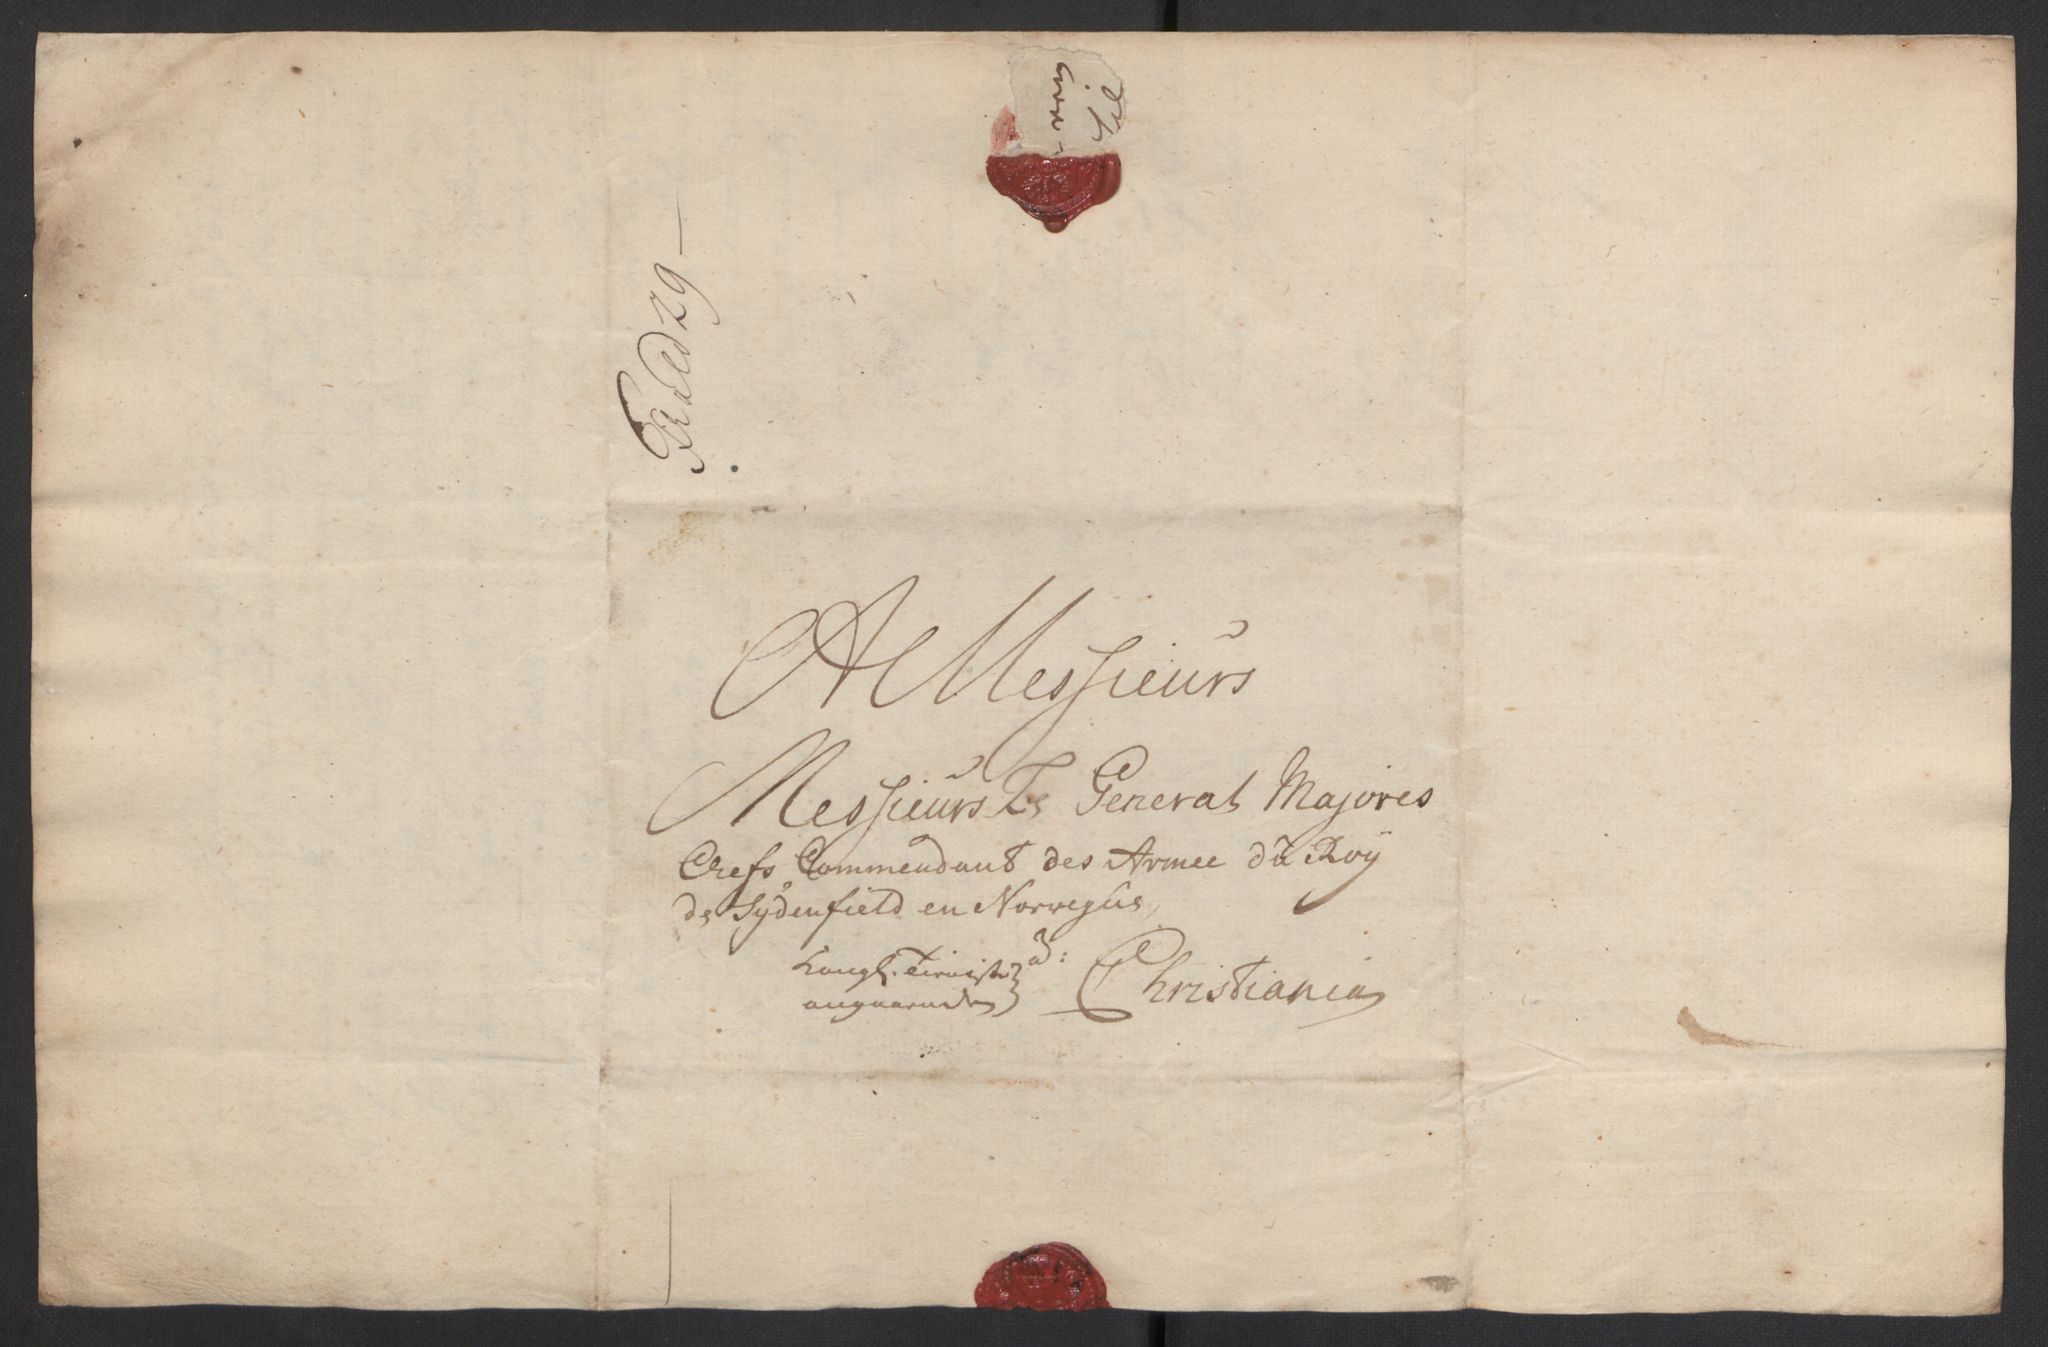 A Messieurs
Messieurs Le General Majores
Chefs Commendant des Armee du Roÿ
de Sÿdenfield en Norvegue,
Kongl. Tieniste
angaaende
a: Christiania